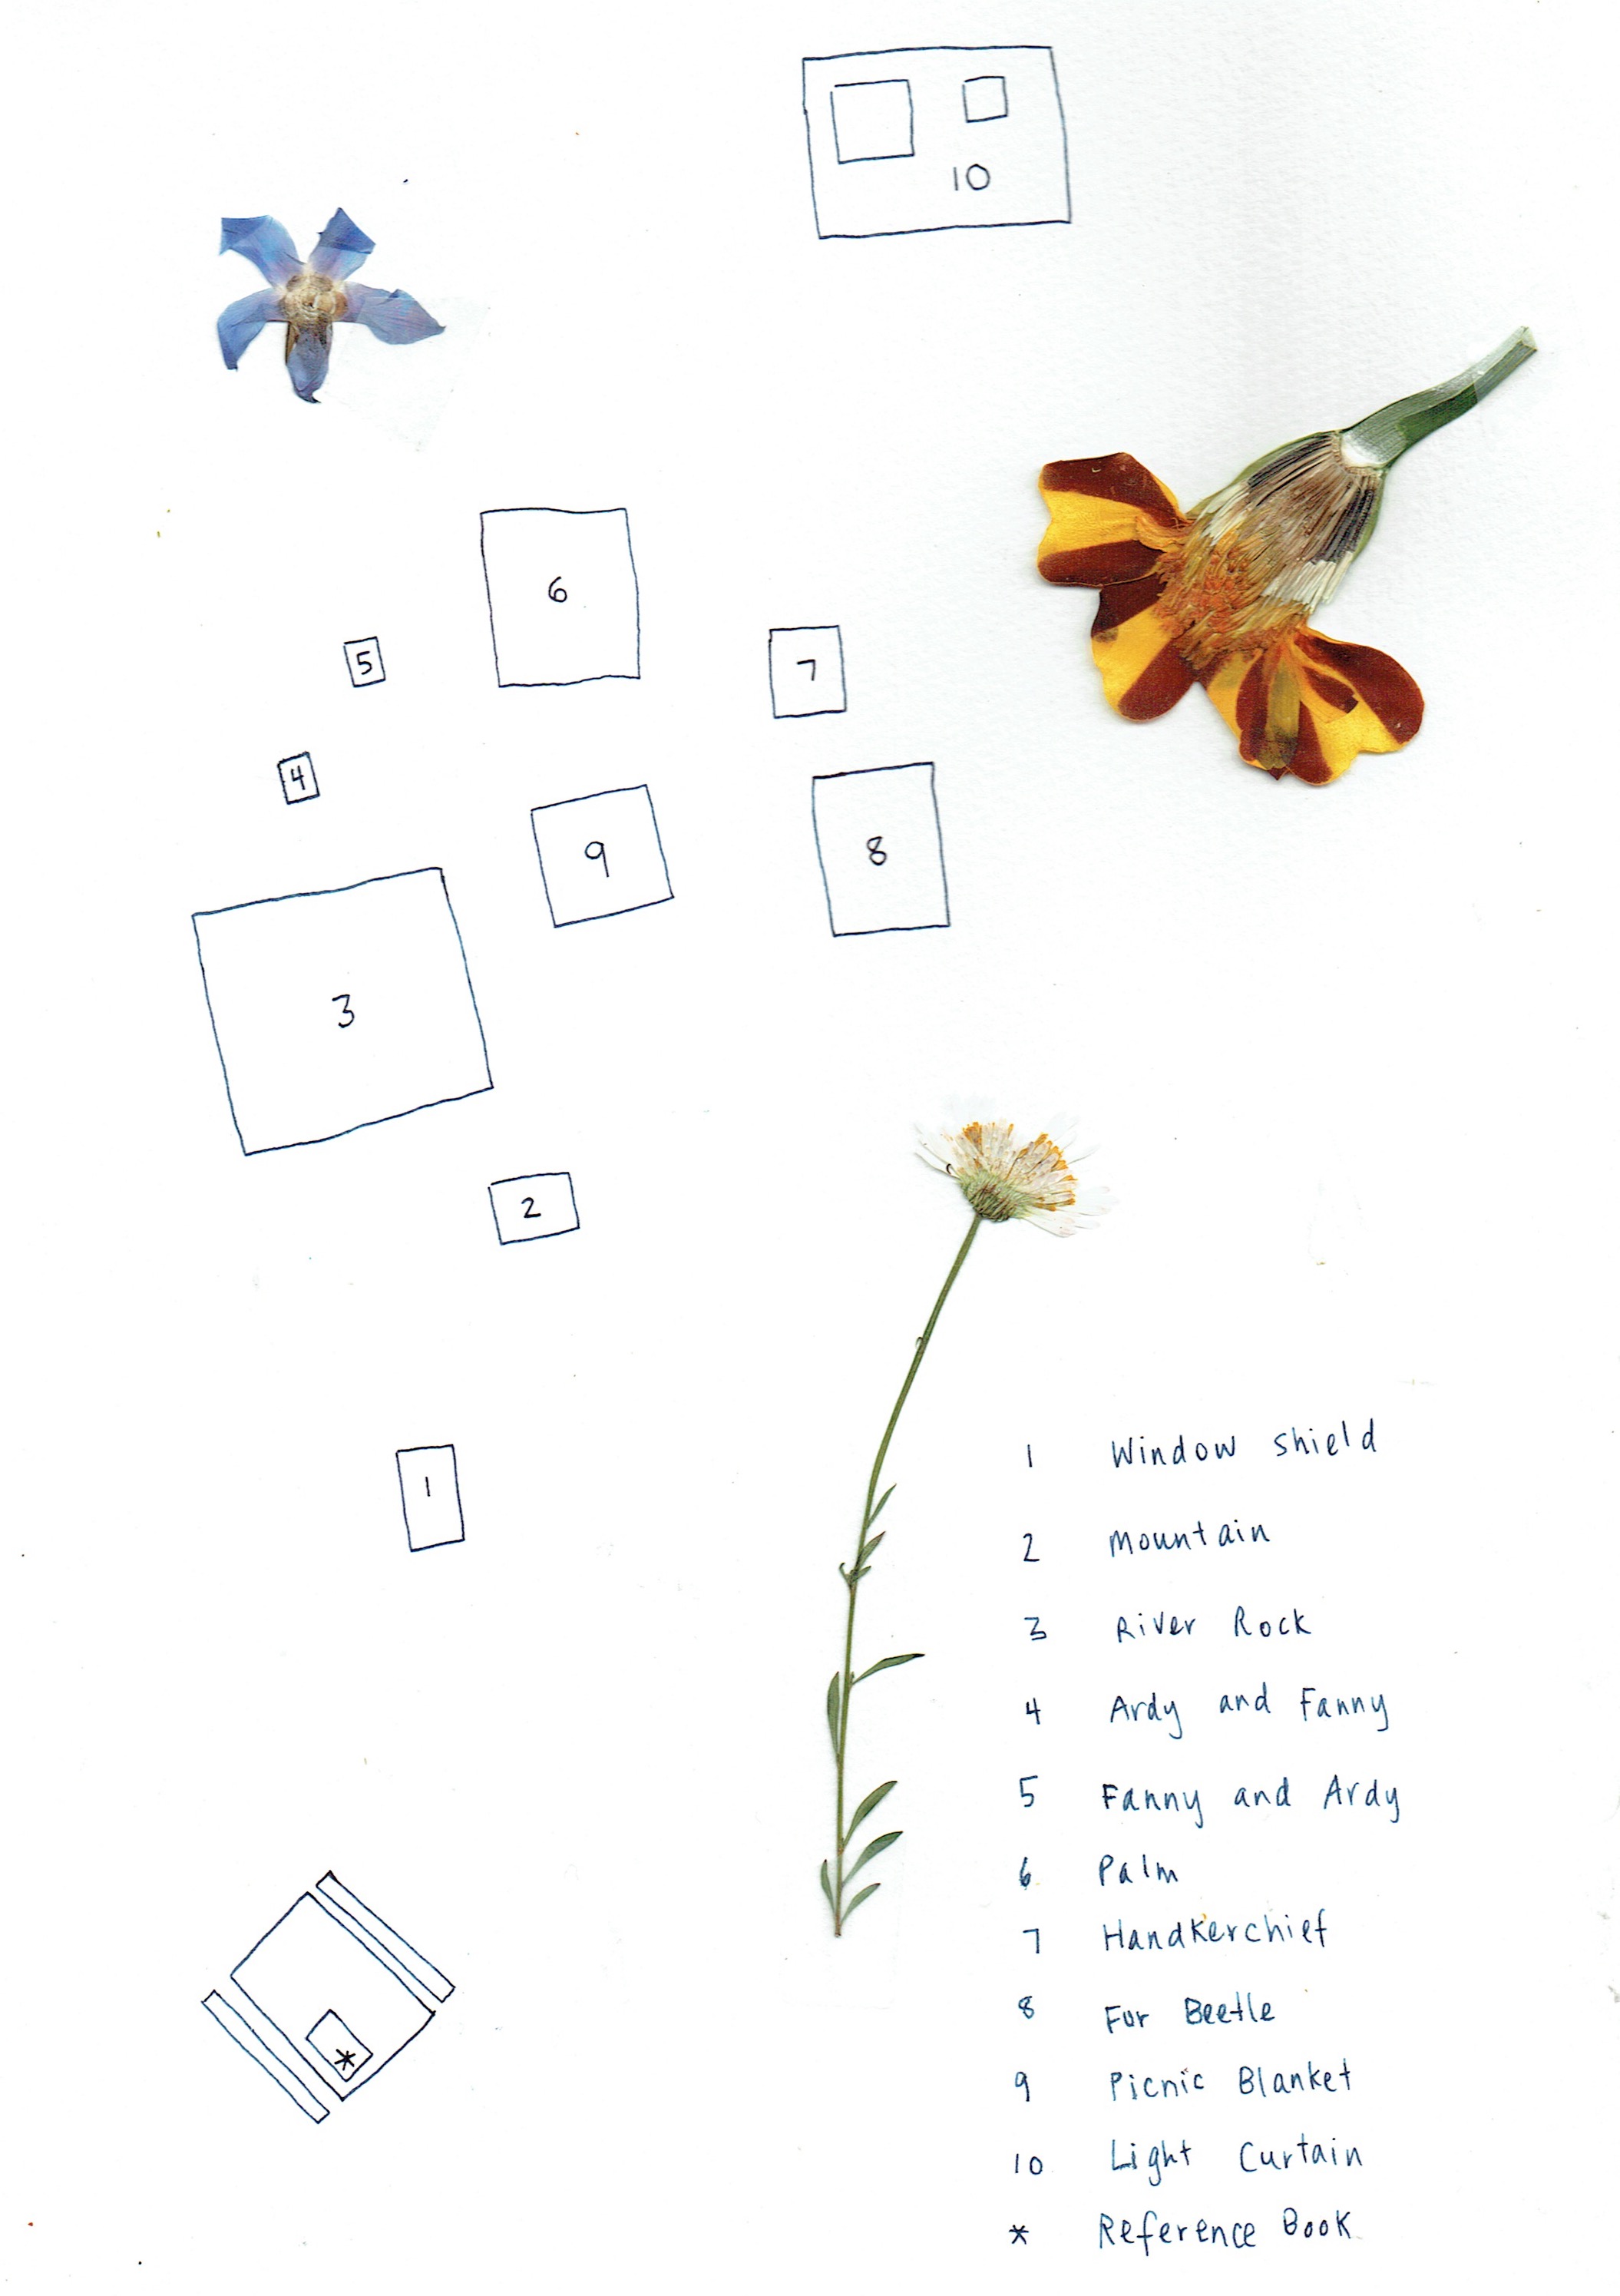 10
6
5
7
4
9
8
3
2
1
*
1 Window shield
2 Mountain
3 River Rock
4 Ardy and Fanny
5 Fanny and Ardy
6 Palm
7 Handkerchief
8 Fur Beetle
9 Picnic Blanket
10 Light Curtain
* Reference Book